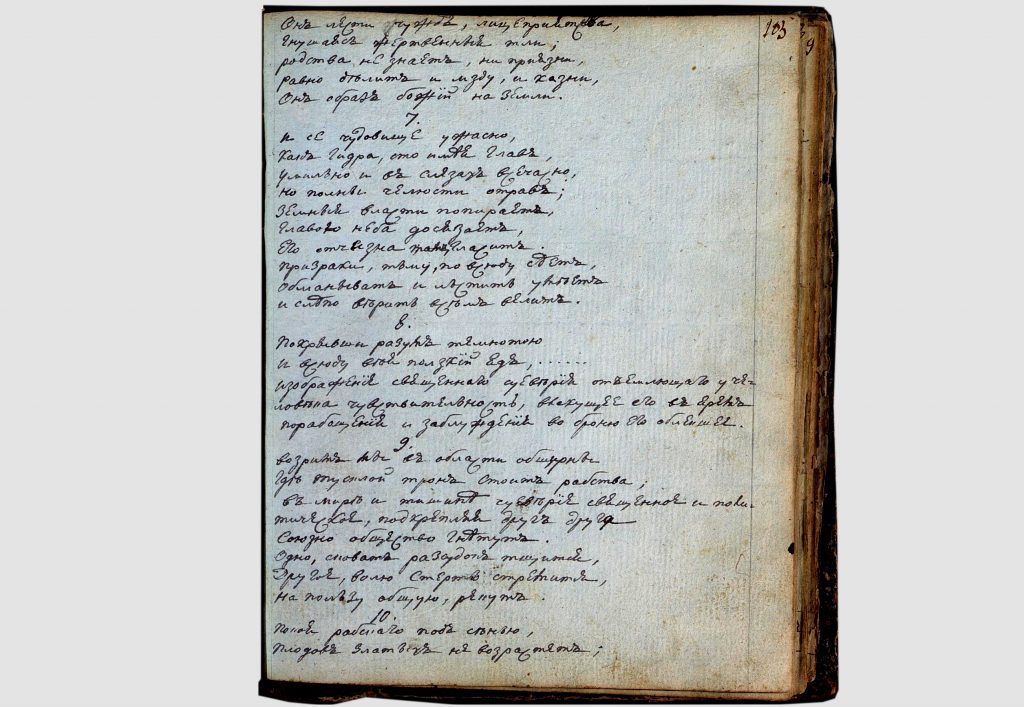 Онъ лести чуждъ, лицепріятства,
Гнушаясь жертвенныя тли;
родства не знаетъ, ни пріязни,
равно дѣлитъ и мзду, и казни,
Онъ образъ божій на земли.
103
9
7.
И се чудовище ужасно,
какъ Гидра, сто имѣя главъ,
умильно и въ слезахъ всечасно,
но полны челюсти отравъ;
Земныя власти попираетъ,
Главою неба досязаетъ,
Его отчизна тамъ гласитъ.
призраки, тьму, повсюду сѣетъ,
Обманывать и льстить умѣетъ
и слѣпо вѣрить всѣмъ велитъ.
8.
Покрывши разумъ темнотою
и всюду вѣя ползкій ядъ, ......
изображеніе священнаго суевѣрія отъемлющаго у че-
ловѣка чувствительность, влекущее его въ яремъ
порабощенія и заблужденія во броню его облекшее.
9.
возримъ мы въ области обширны
Гдѣ тусклой тронъ стоитъ рабства;
въ мирѣ и тишинѣ суевѣріе священное и поли-
тическое, подкрепляя другъ друга
Союзно общество гнѣтутъ.
Одно, сковать разсудокъ тщится,
Другое, волю стерть стремится,
на пользу общую, рекутъ.
10.
Покоя рабскаго подъ сѣнью,
Плодовъ златыхъ не возрастетъ;